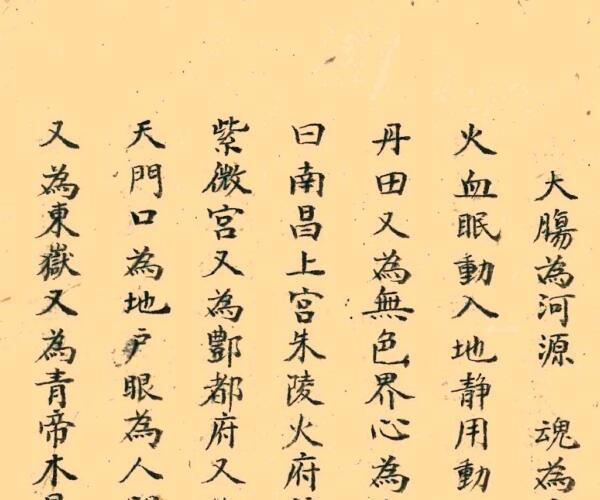 大腸為河源　魂為
火血眠動入地靜用動
丹田又為無色界心為
曰南昌上宮朱陵火府
紫微宮又為酆都府又
天門口為地戶眼為人
又為東嶽又為青帝木